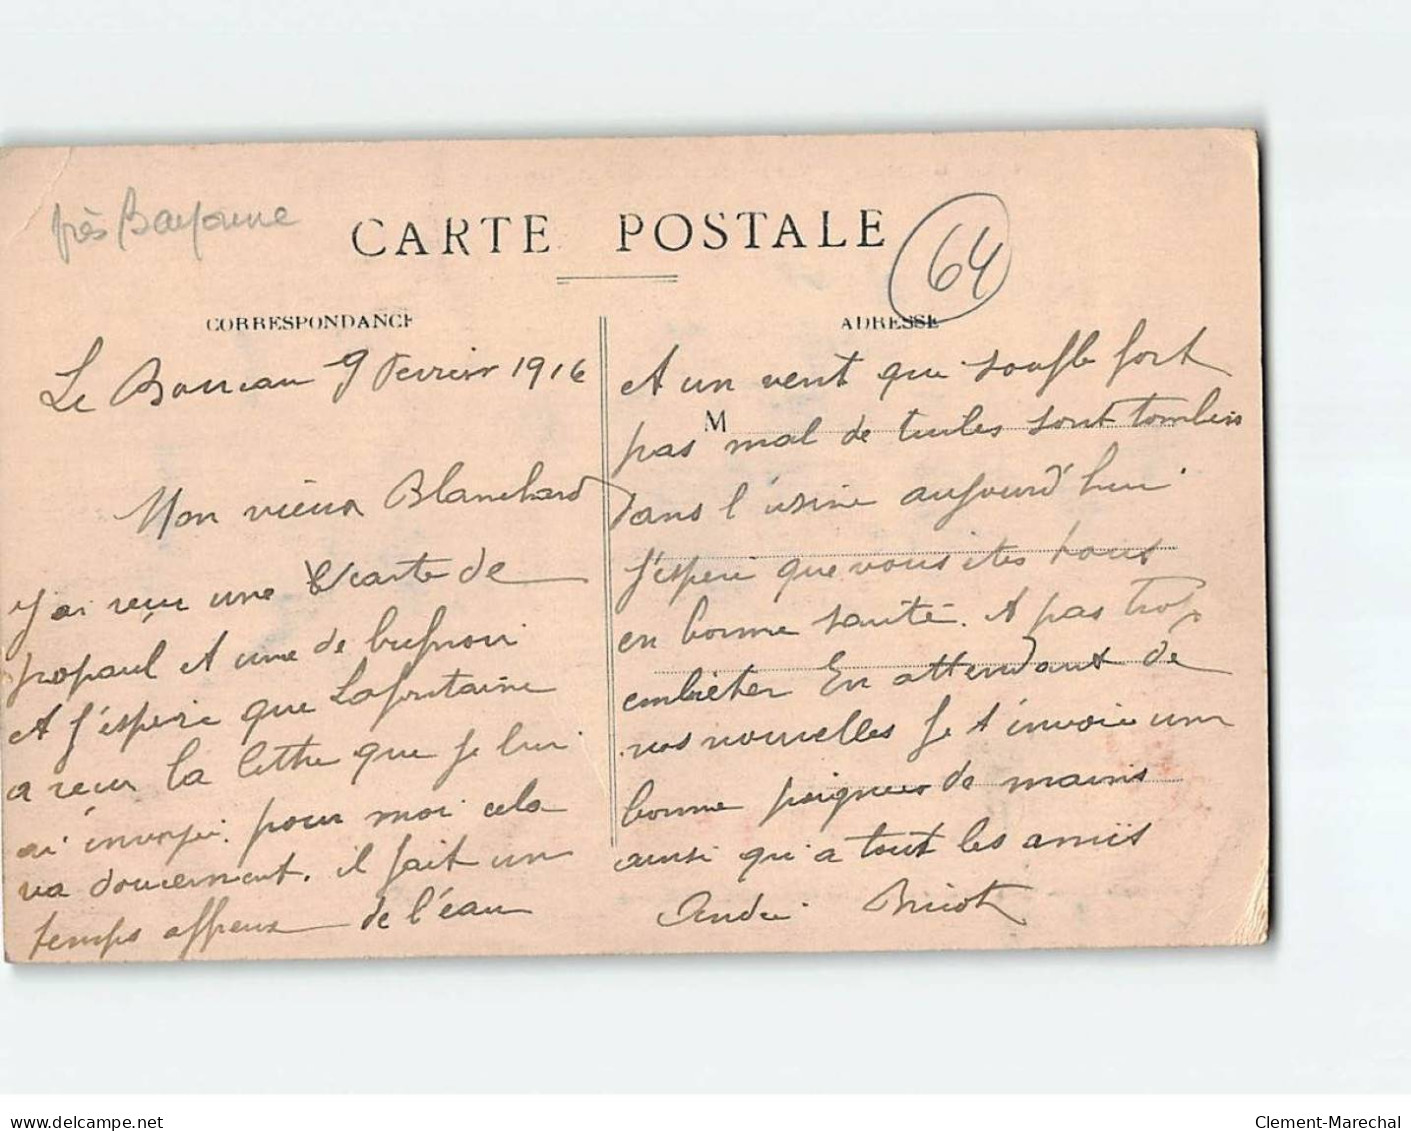 près Bayonne
CARTE POSTALE
64
CORRESPONDANCE
Le Boucau 9 Fevrier 1916
Mon vieux Blanchard
J'ai reçu une carte de
propaul et une de
et j'espere que Lafontaine
a reçu la lettre que je lui
ai envoyé. pour moi cela
va doucement. il fait un
temps affreux de l'eau
ADRESSE
M
et un vent que soufle fort
pas mal de tuiles sont tombées
dans l'usine aujourd'hui
j'espere que vous ites tous
en bonne santé. et pas trop
embéter En attendant de
vos nouvelles je t'invoie une
bonne poigneé de mains
ainsi qu'a tout les amis
André Bricot
www.delcampe.net
Clement-Marechal